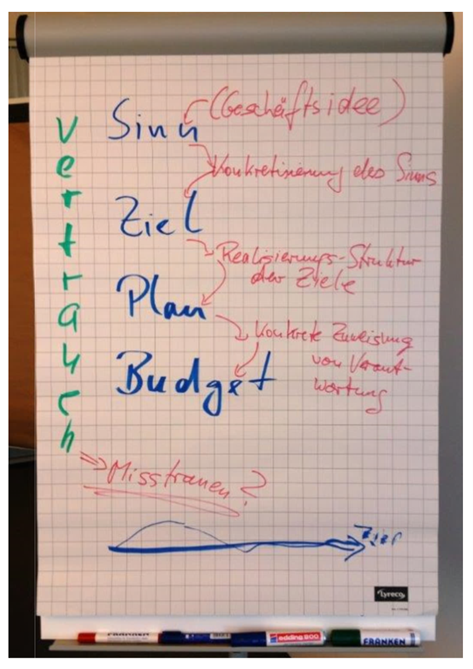 Vertrauen
Sinn
(Geschäftsidee)
Konkretisierung des Sinns
Ziel
Realisierungs-Struktur
der Ziele
Plan
Konkrete Zuweisung
von Verant-
wortung
Budget
Misstrauen?
Ziel
lyreco
FRANKEN
edding 800
FRANKEN